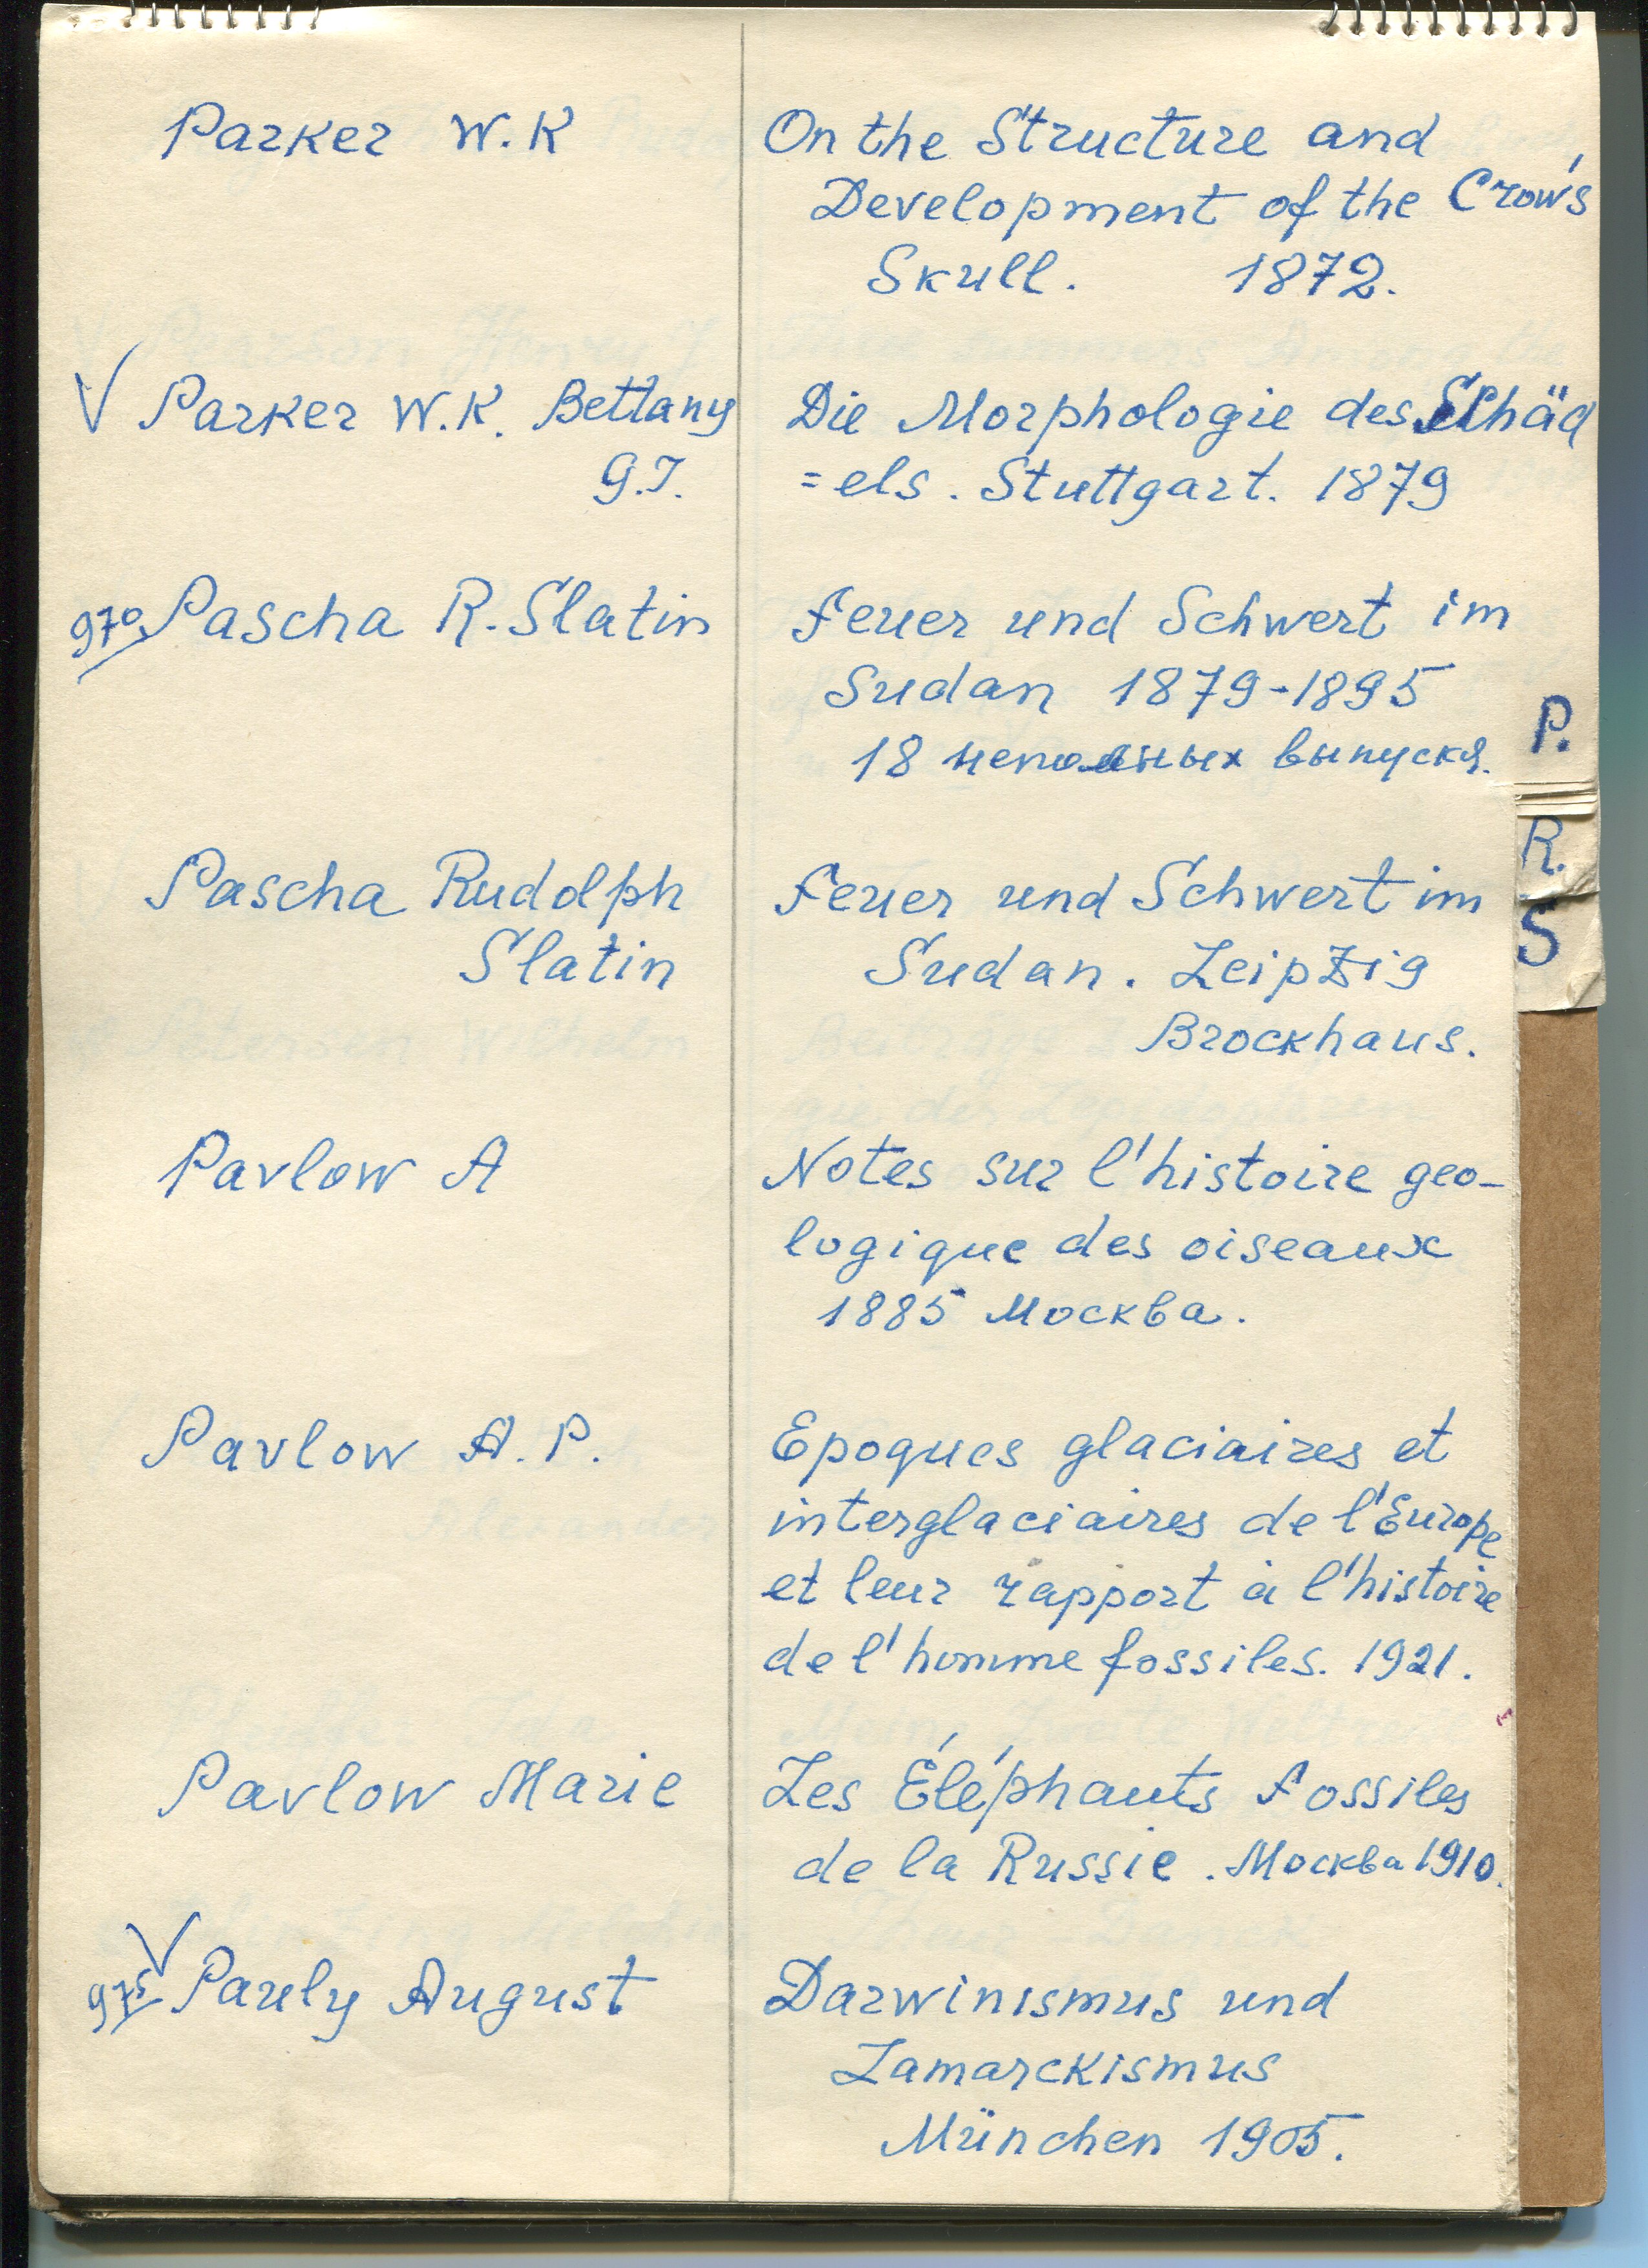 Parker W.K
On the Structure and
Development of the Crow's
Skull. 1872.
V Parker W.K. Bettany
G.T.
Die Morphologie des Schäd
=els. Stuttgart. 1879
970 Pascha R. Slatin
Feuer und Schwert im
Sudan 1879-1895
18 неполных выпуска.
P.
R.
S
Pascha Rudolph
Slatin
Feuer und Schwert im
Sudan. Leipzig
Brockhaus.
Pavlow A
Notes sur l'histoire geo-
logique des oiseaux
1885 Москва.
Pavlow A. P.
Epoques glaciaires et
interglaciaires de l'Europe
et leur rapport à l'histoire
de l'homme fossiles. 1921.
Pavlow Marie
Les Éléphants Fossiles
de la Russie. Москва 1910.
V
975 Pauly August
Darwinismus und
Lamarckismus
München 1905.